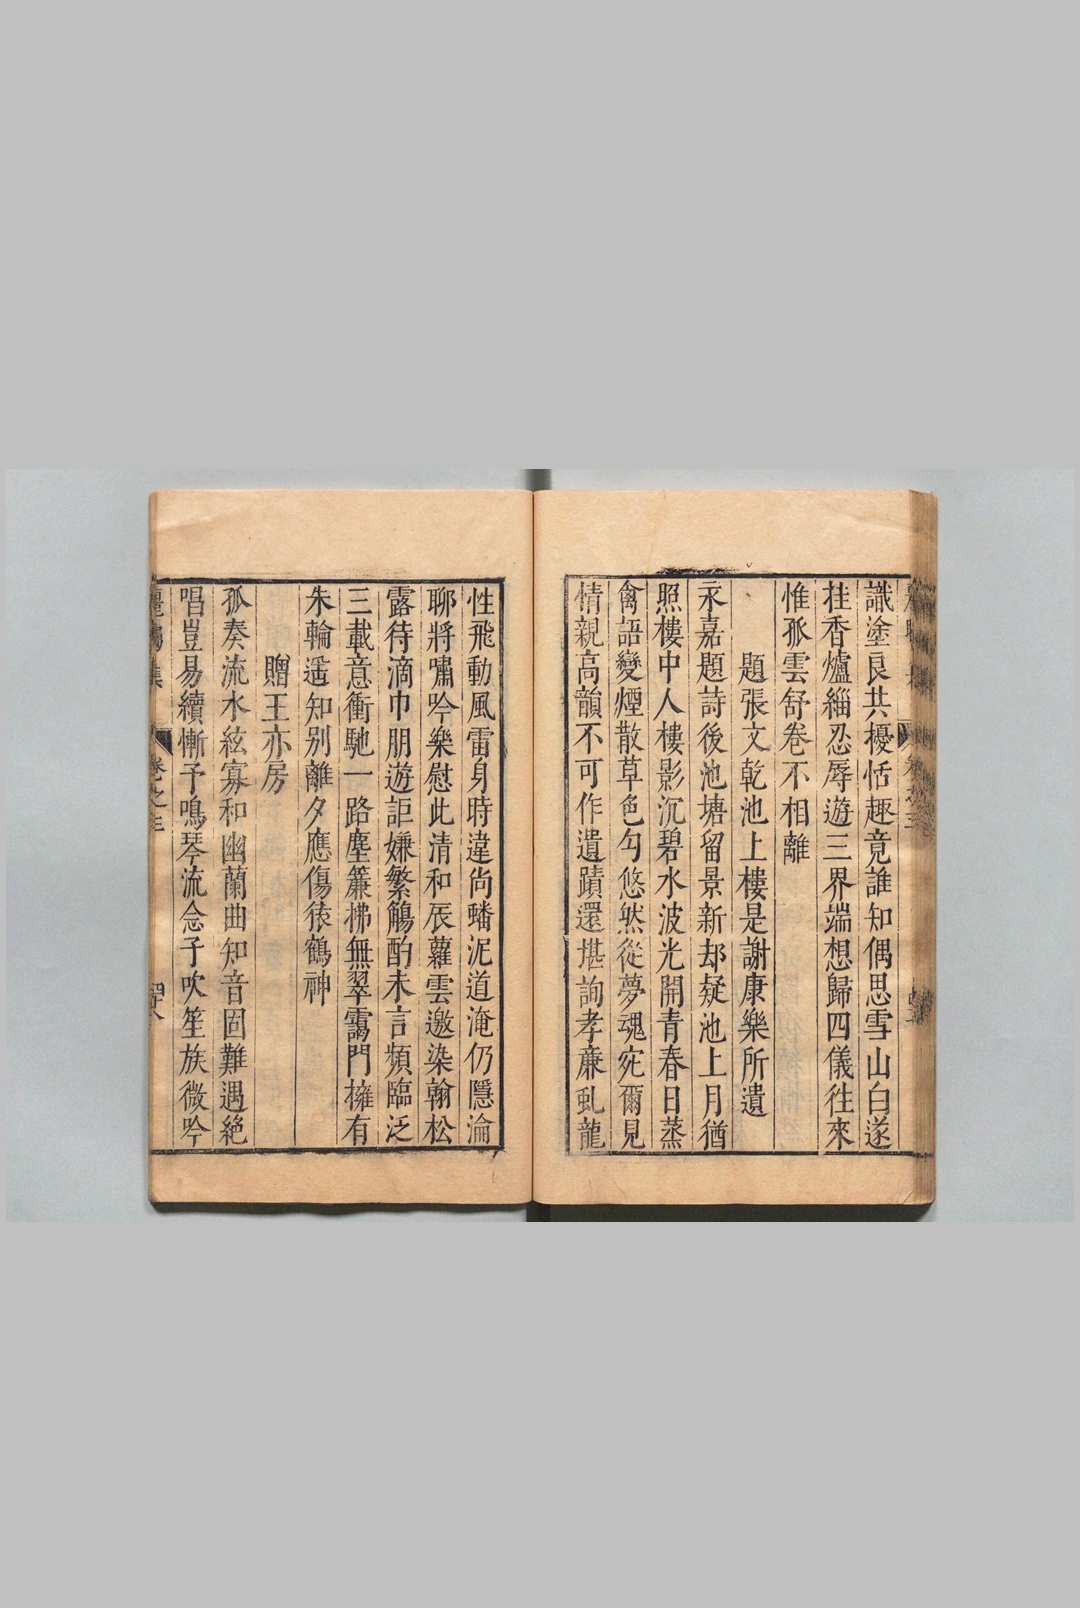 識塗良共擾恬趣竟誰知偶思雪山白遂
挂香爐緇忍辱遊三界端想歸四儀徃來
惟孤雲舒卷不相離
題張文乾池上樓是謝康樂所遺
永嘉題詩後池塘留景新却疑池上月猶
照樓中人樓影沉碧水波光開青春日蒸
禽語變煙散草色勻悠然從夢魂宛爾見
情親高韻不可作遺蹟還堪詢孝廉虬龍
性飛動風雷身時違尚蟠泥道淹仍隱淪
聊將嘯吟樂慰此清和辰蘿雲邀染翰松
露待滴巾朋遊詎嫌繁觴酌未言頻臨泛
三載意衝馳一路塵簾拂無翠靄門擁有
朱輪遥知别離夕應傷猿鶴神
贈王亦房
孤奏流水絃寡和幽蘭曲知音固難遇絶
唱豈易續慚予鳴琴流念子吹笙族微吟
卷之三
四十八